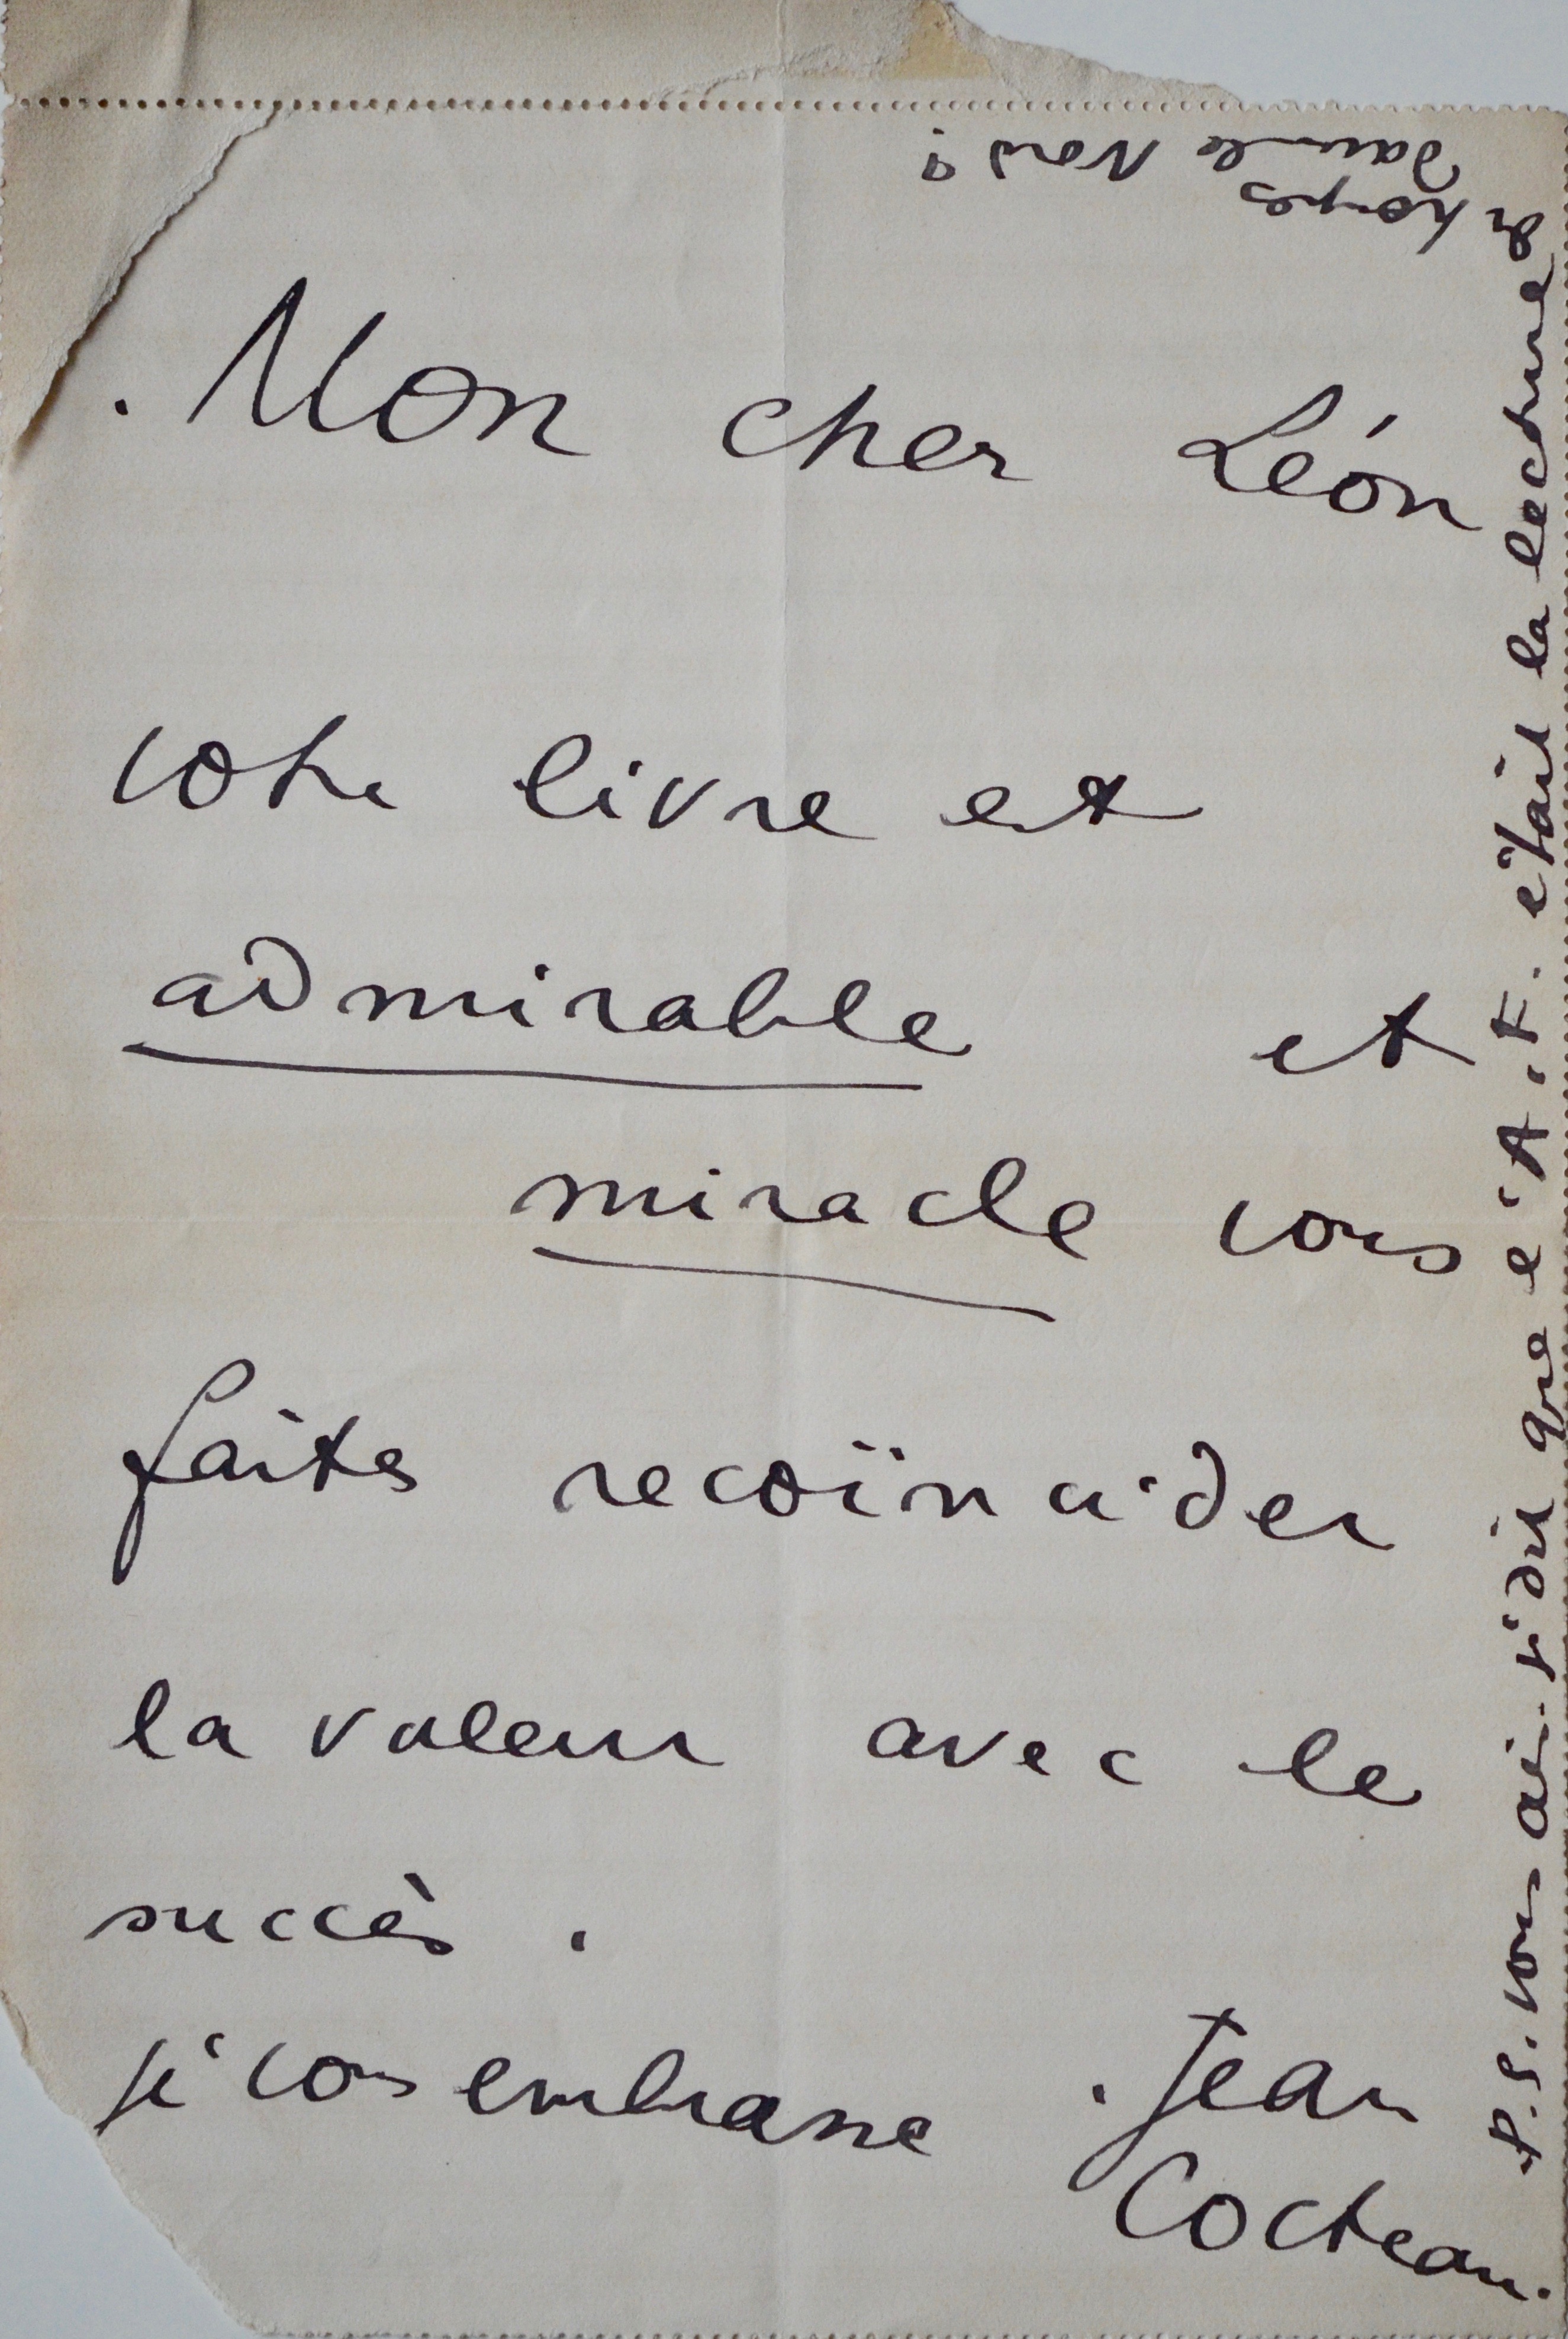 . Mon cher Léon
votre livre est
admirable et
miracle vous
faites recoïncider
la valeur avec le
succès .
je vous embrasse . Jean
Cocteau.
P.S. vous ai-je dit que l'A.F. était la lecture
troupes
dans le Nord ?